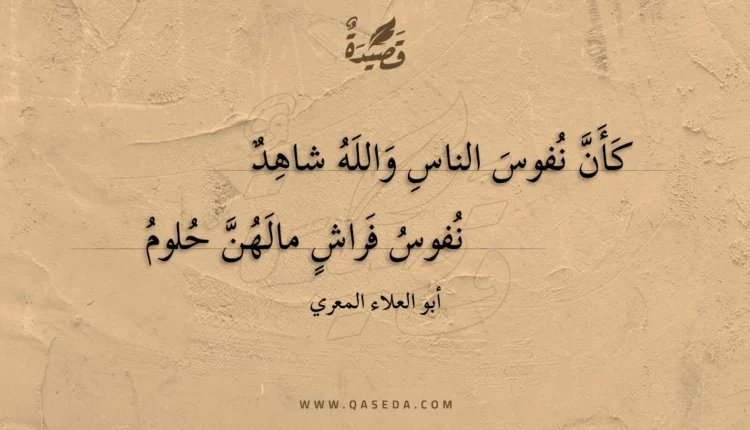 قَصِيدَةٌ
كَأَنَّ نُفوسَ الناسِ وَاللَهُ شاهِدٌ
نُفوسُ فَراشٍ مالَهُنَّ حُلومُ
أبو العلاء المعري
WWW.QASEDA.COM